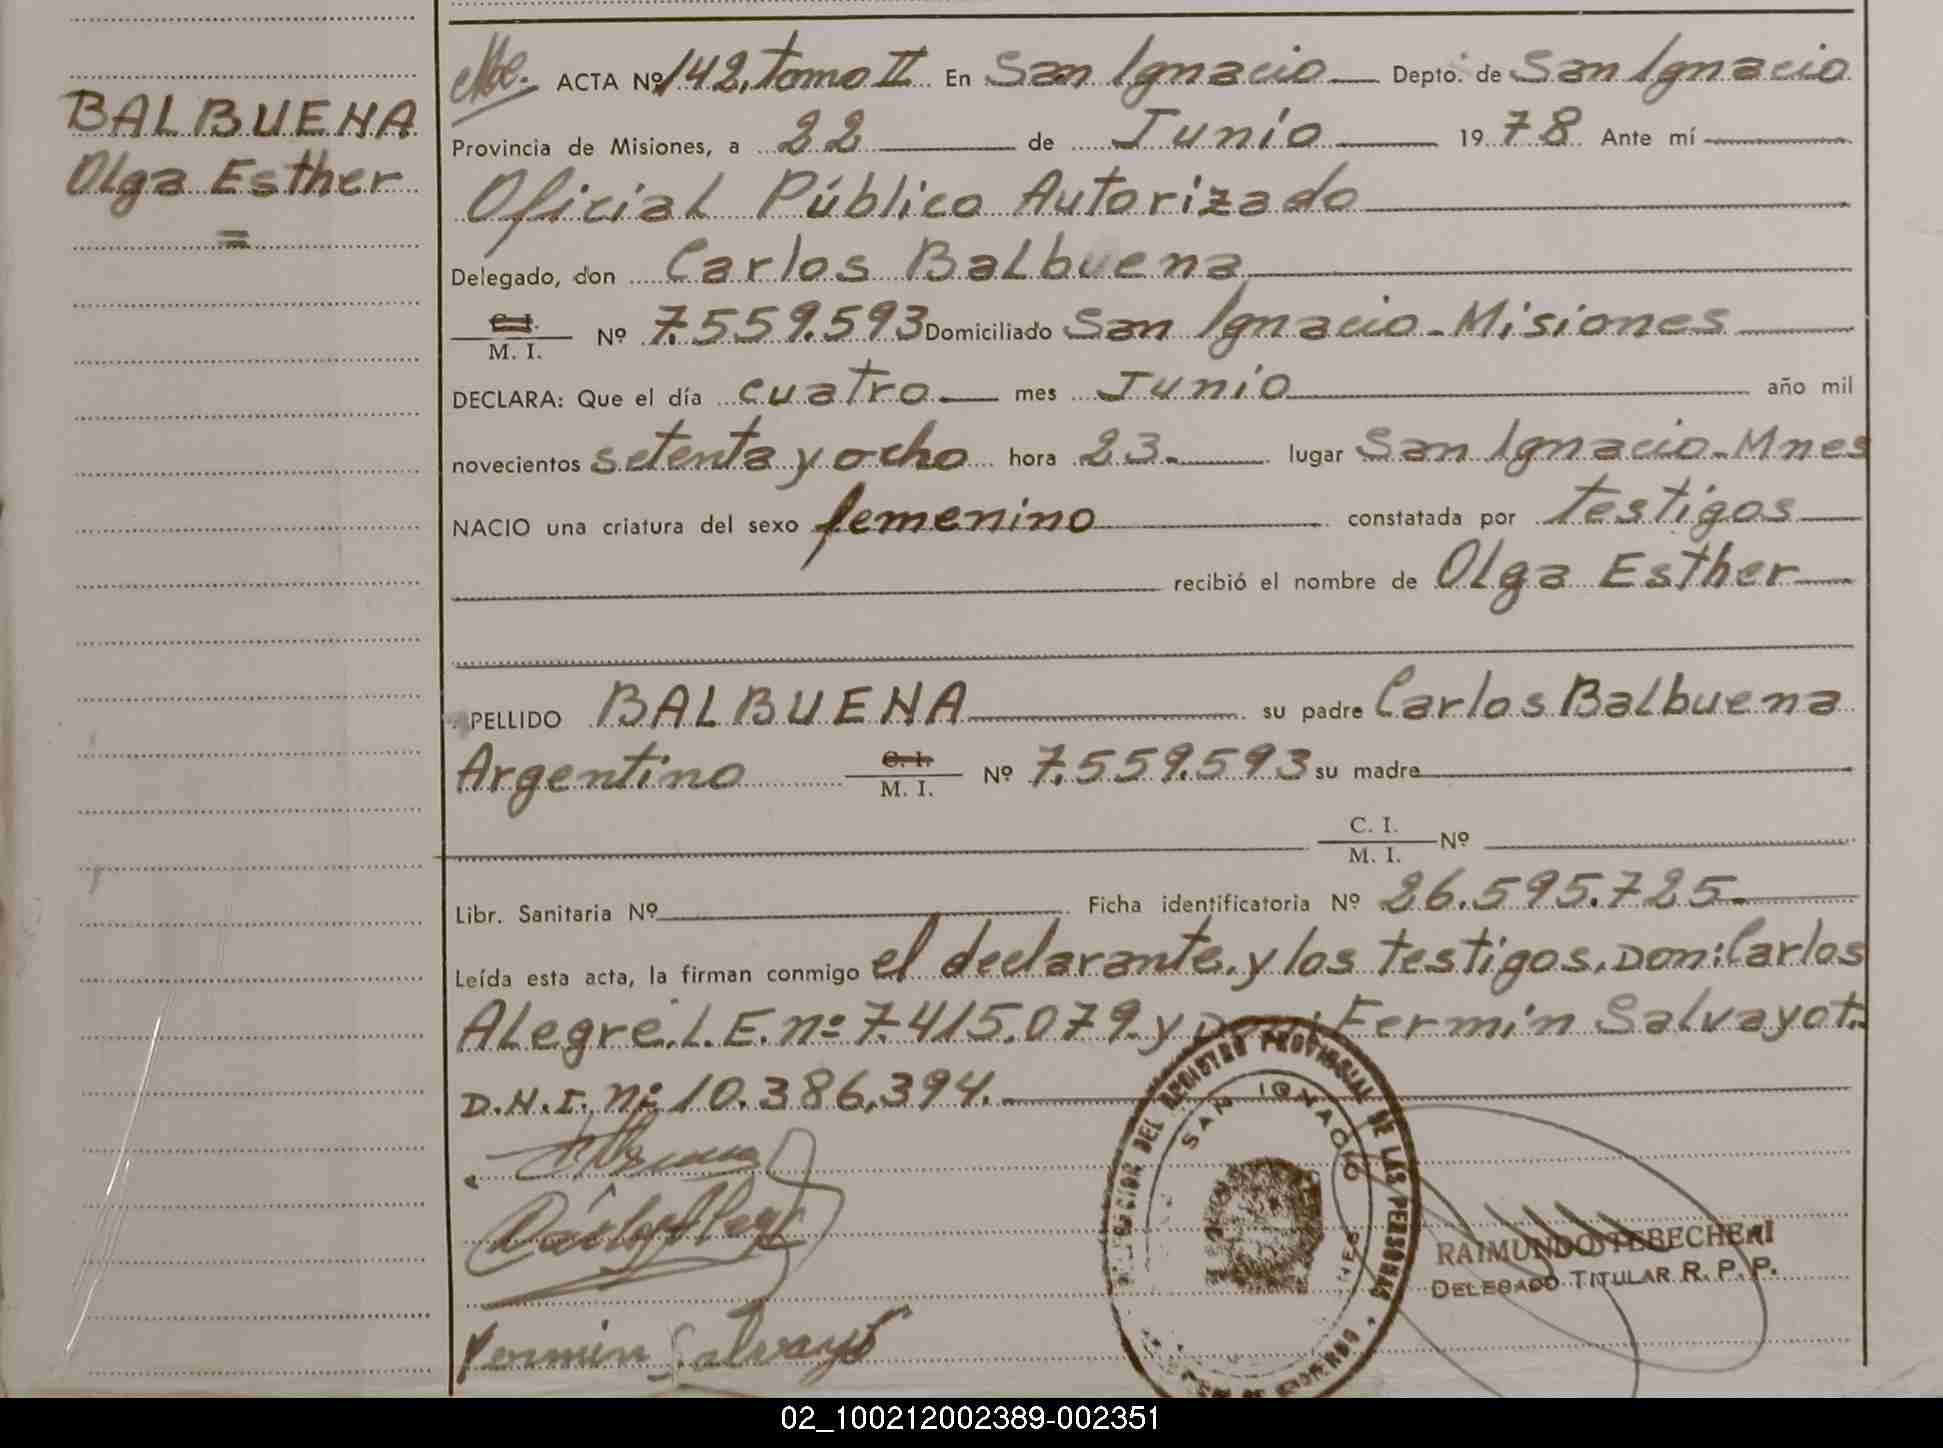 BALBUENA
Olga Esther
=
ACTA Nº 142, tomo II En San Ignacio Depto. de San Ignacio
Provincia de Misiones, a 22 de Junio 1978 Ante mí
Oficial Público Autorizado
Delegado, don Carlos Balbuena
C. I.
M. I. Nº 7.559.593 Domiciliado San Ignacio - Misiones
DECLARA: Que el día cuatro mes Junio año mil
novecientos setenta y ocho hora 23. lugar San Ignacio - Mnes
NACIO una criatura del sexo femenino constatada por testigos
recibió el nombre de Olga Esther
APELLIDO BALBUENA su padre Carlos Balbuena
Argentino C. I.
M. I. Nº 7.559.593 su madre
C. I.
M. I. Nº
Libr. Sanitaria Nº Ficha identificatoria Nº 26.595.725.
Leída esta acta, la firman conmigo el declarante, y los testigos, Don: Carlos
Alegre, L.E. nº 7.415.079 y Don: Fermin Salvayot.
D.N.I. nº 10.386,394.
Fermin Salvayot
DEL REGISTRO PROVINCIAL DE LAS PERSONAS
SAN IGNACIO
RAIMUNDO TEBECHERI
DELEGADO TITULAR R. P. P.
02_100212002389-002351